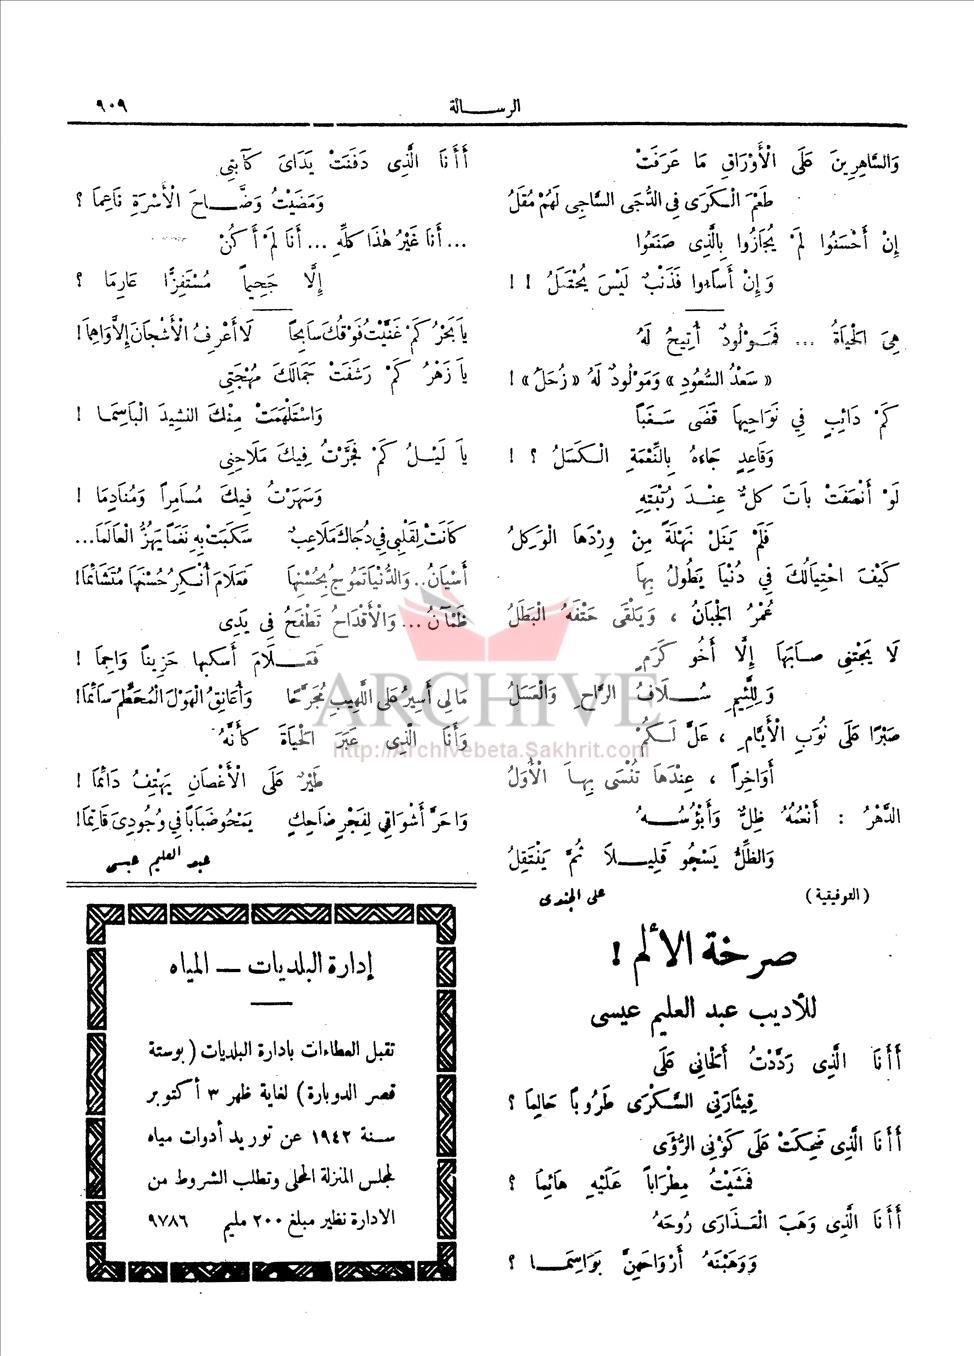 الرسالة
٩٠٩
وَالسَّاهِرِينَ عَلَى الْأَوْرَاقِ مَا عَرَفَتْ
طَعْمَ الْكَرَى فِي الدُّجَى السَّاجِي لَهُمْ مُقَلُ
إِنْ أَحْسَنُوا لَمْ يُجَازُوا بِالَّذِي صَنَعُوا
وَإِنْ أَسَاءُوا فَذَنْبٌ لَيْسَ يُحْتَمَلُ !!
هِيَ الْحَيَاةُ ... فَمَوْلُودٌ أُتِيحَ لَهُ
« سَعْدُ السُّعُودِ » وَمَوْلُودٌ لَهُ « زُحَلُ » !
كَمْ دَائِبٍ فِي نَوَاحِيهَا قَضَى سَغَباً
وَقَاعِدٍ جَاءَهُ بِالنِّعْمَةِ الْكَسَلُ ؟ !
لَوْ أَنْصَفَتْ بَاتَ كلٌّ عِنْدَ رُتْبَتِهِ
فَلَمْ يَنَلْ نَهْلَةً مِنْ وِرْدِهَا الْوَكِلُ
كَيْفَ احْتِيَالُكَ فِي دُنْيَا يَطُولُ بِهَا
عُمْرُ الْجَبَانُ ، وَيَلْقَى حَتْفَهُ الْبَطَلُ
لَا يَجْتَنِي صابَهَا إِلَّا أَخُو كَرَمٍ
وَلِلَّئِيمِ سُلَافُ الرَّاحِ وَالْعَسَلُ
صَبْرًا عَلَى نُوَبِ الْأَيَّامِ ، عَلَّ لَكُمْ
أَوَاخِراً ، عِنْدَهَا تُنْسَى بِهَا الْأُوَلُ
الدَّهْرُ : أَنْعُمُهُ ظِلٌّ وَأَبْؤُسُهُ
وَالظِّلُّ يَسْجُو قَلِيلاً ثُمَّ يَنْتَقِلُ
(التوفيقية) على الجندى
صرخة الألم !
للأديب عبد العليم عيسى
أَأَنَا الَّذِي رَدَّدْتُ أَلْحَانِي عَلَى
قِيثَارَتِي السَّكْرَى طَرُوباً حَالِماً ؟
أَأَنَا الَّذِي ضَحِكَتْ عَلَى كَوْنِي الرُّؤَى
فَمَشَيْتُ مِطْرَاباً عَلَيْهِ هَائِماً ؟
أَأَنَا الَّذِي وَهَبَ الْعَذَارَى رُوحَهُ
وَوَهَبْنَهُ أَرْوَاحَهُنَّ بَوَاسِمَا ؟
أَأَنَا الَّذِي دَفَنَتْ يَدَايَ كَآبَتِي
وَمَضَيْتُ وَضَّاحَ الْأَسْرَةِ نَاعِمَا ؟
... أَنَا غَيْرُ هٰذَا كلِّهِ ... أَنَا لَمْ أَكُنْ
إِلَّا جَحِيماً مُسْتَفِزًّا عَارِمَا ؟
يَا بَحْرُ كَمْ غَنَّيْتُ فَوْقَكَ سَابِحاً لَا أَعْرِفُ الْأَشْجَانَ إِلَّا وَاهِمَا !
يَا زَهْرُ كَمْ رَشَفَتْ جَمَالَكَ مُهْجَتِي
وَاسْتَلْهَمَتْ مِنْكَ النشيدَ الْبَاسِمَا !
يَا لَيْلُ كَمْ فَجَّرْتُ فِيكَ مَلَاحِنِي
وَسَهِرْتُ فِيكَ مُسَامِراً وَمُنَادِمَا !
كَانَتْ لِقَلْبِي فِي دُجَاكَ مَلَاعِبٌ سَكَبَتْ بِهِ نَغَماً يَهُزُّ الْعَالَمَا...
أَسْيَانُ.. وَالدُّنْيَا تَمُوجُ بِحُسْنِهَا فَعَلَامَ أُنْكِرُ حُسْنَهَا مُتَشَائِمَا!
ظَمْآنُ ... وَالْأَقْدَاحُ تَطْفَحُ فِي يَدِي
فَعَلَامَ أَسكبها حَزِيناً وَاجِمَا !
مَالِي أَسِيرُ عَلَى اللَّهِيبِ مُجَرَّحًا وَأُعَانِقُ الْهَوْلَ الْمُحَطِّمَ سَائِمَا!
وَأَنَا الَّذِي عَبَرَ الْحَيَاةَ كَأَنَّهُ
طَيْرٌ عَلَى الْأَغْصَانِ يَهْتِفُ دَائِمَا !
وَاحَرَّ أَشْوَاقِي لِفَجْرٍ ضَاحِكٍ يَمْحُو ضَبَاباً فِي وُجُودِيَ قَاتِمَا!
عبد العليم عيسى
إدارة البلديات ــ المياه
تقبل العطاءات بادارة البلديات ( بوستة
قصر الدوبارة ) لغاية ظهر ٣ أكتوبر
سنة ١٩٤٢ عن توريد أدوات مياه
لمجلس المنزلة المحلى وتطلب الشروط من
الادارة نظير مبلغ ٢٠٠ مليم ٩٧٨٦
ARCHIVE
http://Archivebeta.Sakhrit.com